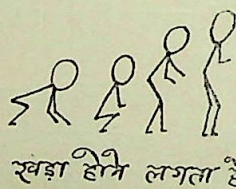 खड़ा होने लगता है